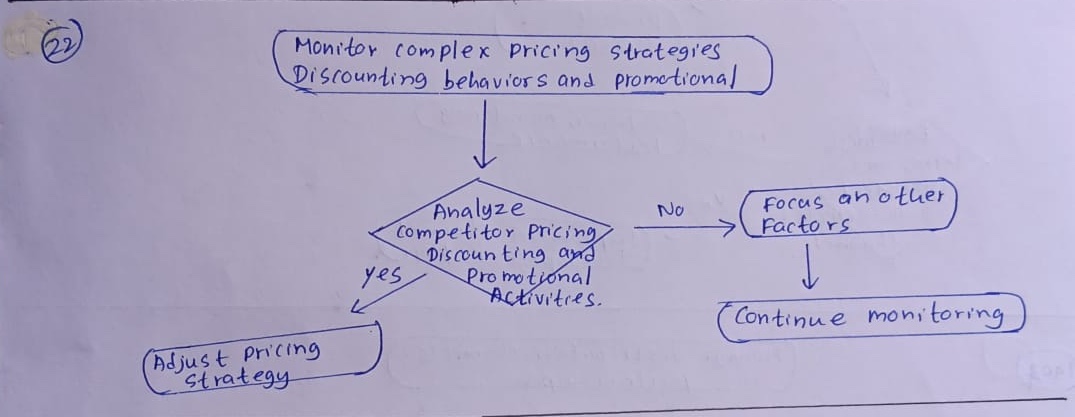 22
Monitor complex pricing strategies
Discounting behaviors and promotional
Analyze
Competitor pricing
Discounting and
Promotional
Activities.
No
Focus an other
Factors
Continue monitoring
yes
Adjust pricing
strategy